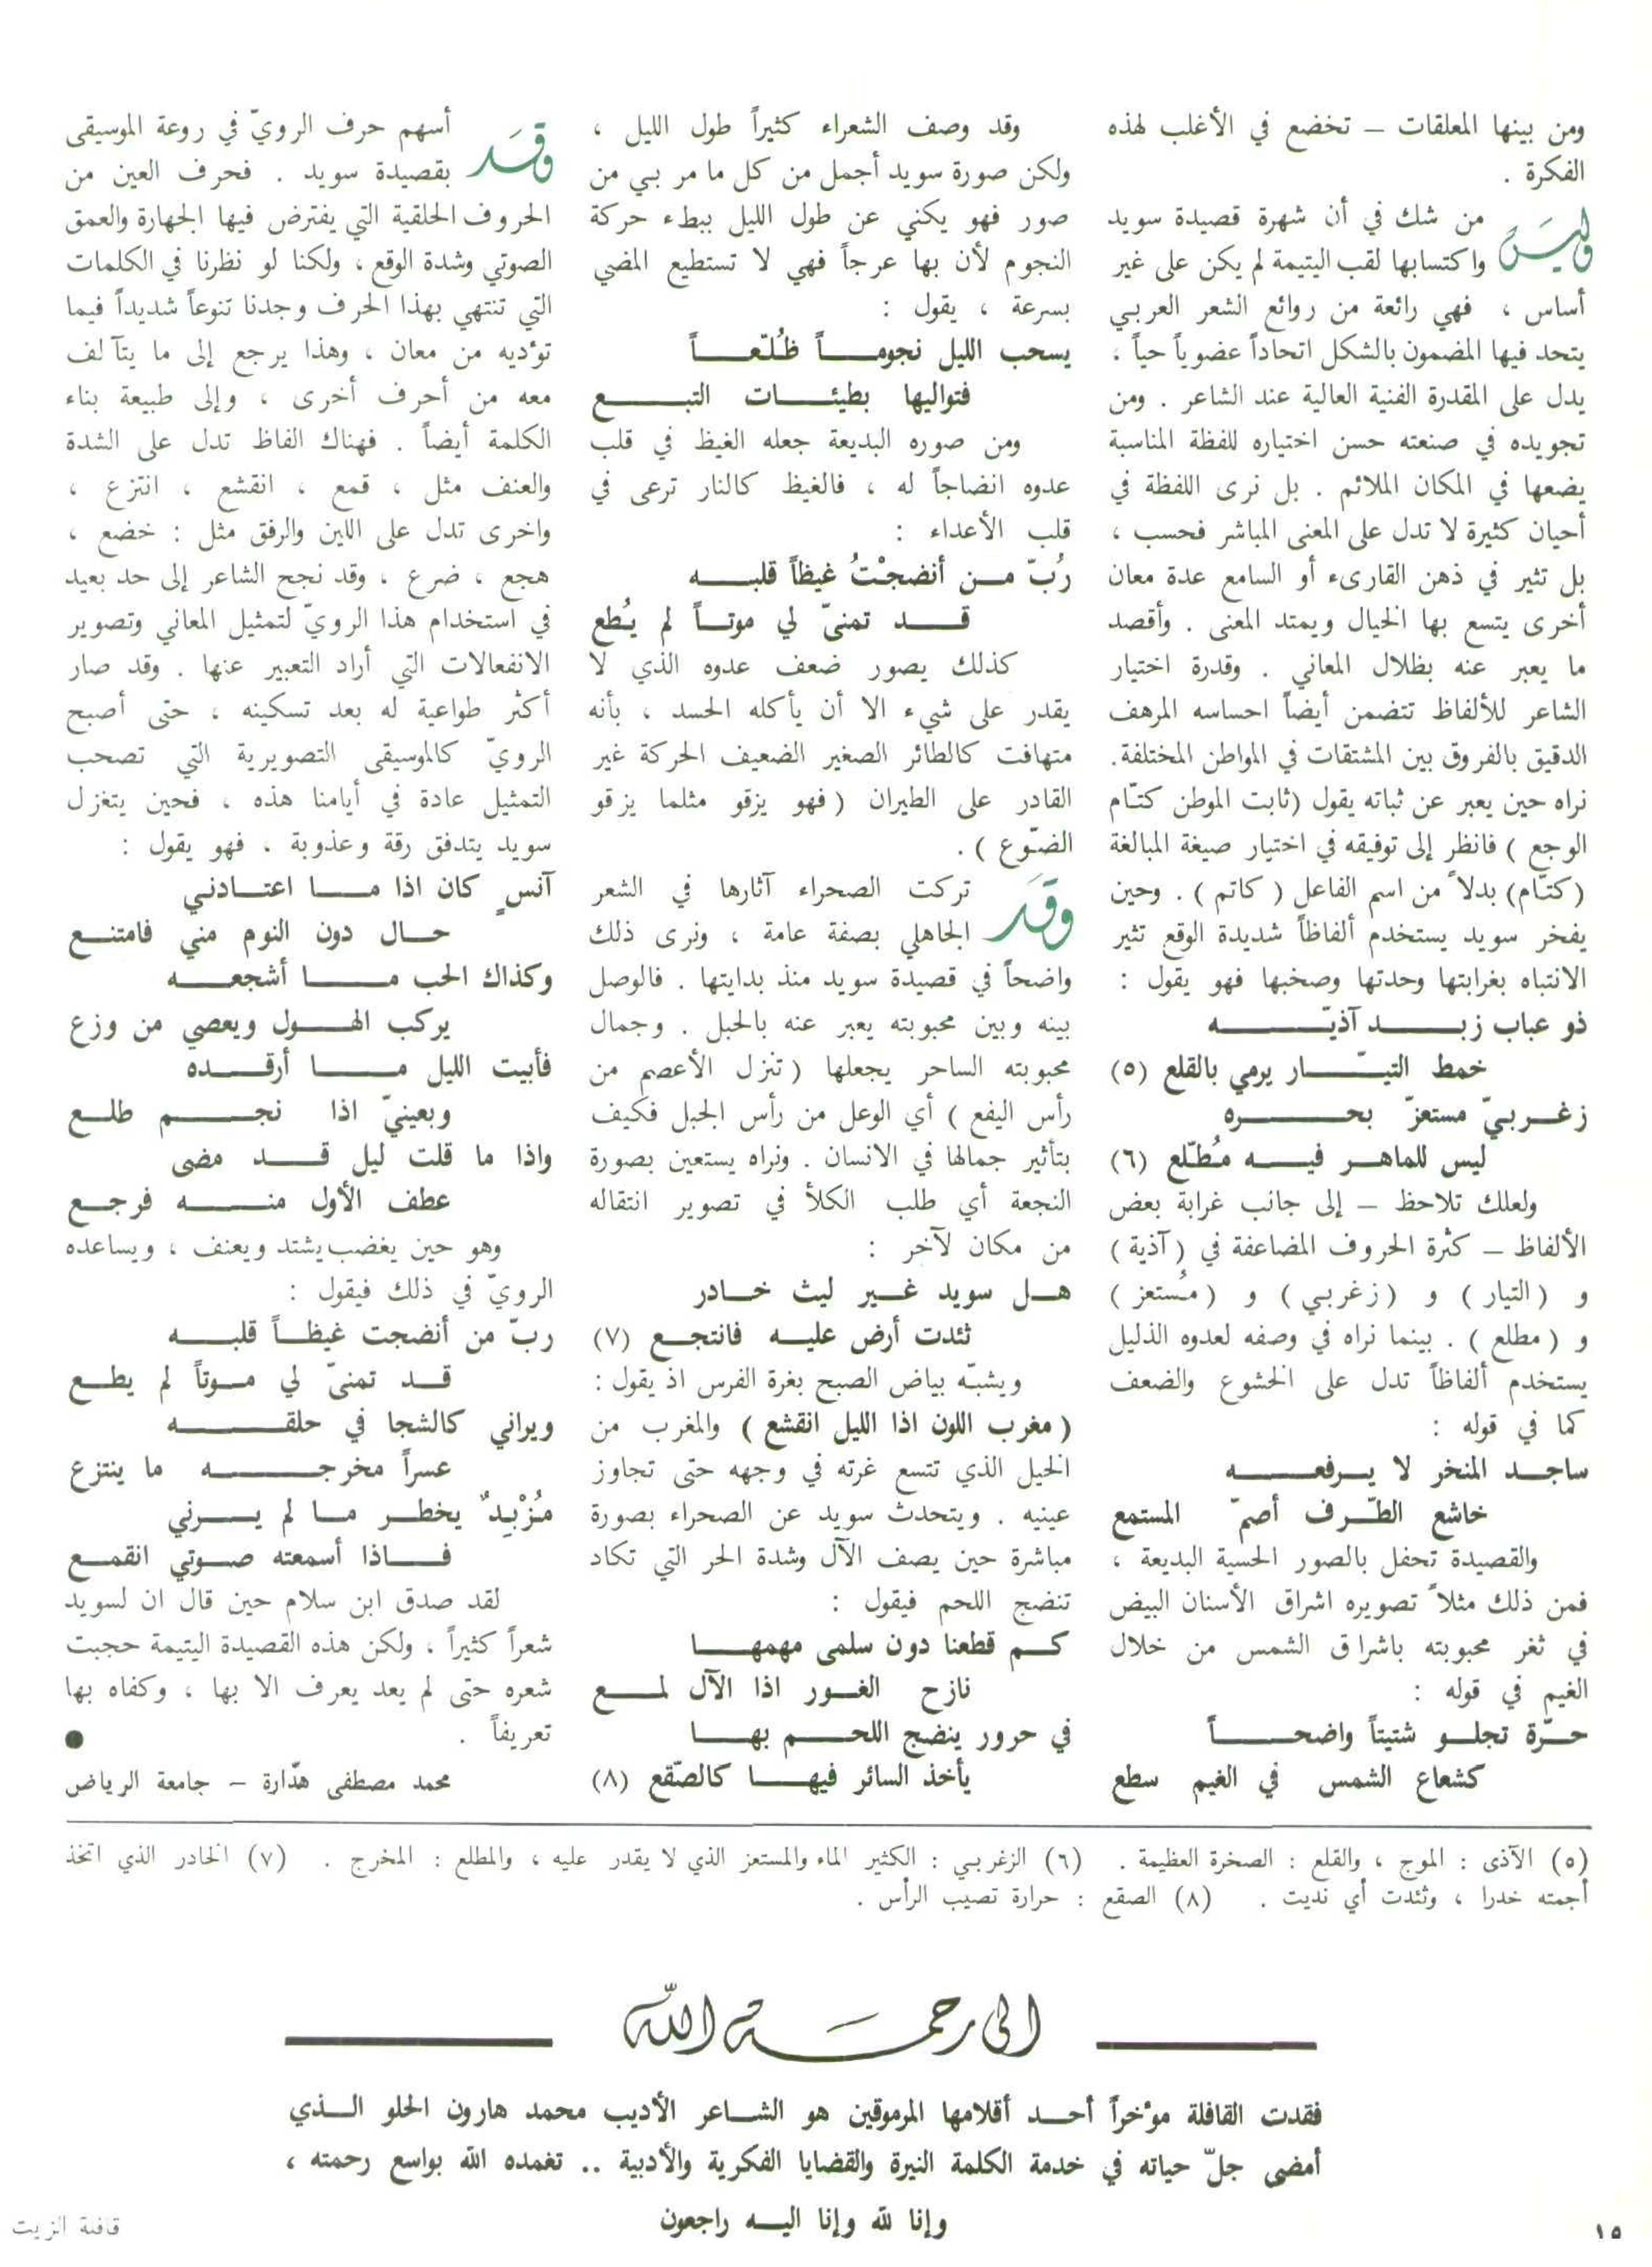 ومن بينها المعلقات – تخضع في الأغلب لهذه
الفكرة .
وليسَ من شك في أن شهرة قصيدة سويد
واكتسابها لقب اليتيمة لم يكن على غير
أساس ، فهي رائعة من روائع الشعر العربي
يتحد فيها المضمون بالشكل اتحاداً عضوياً حياً ،
يدل على المقدرة الفنية العالية عند الشاعر . ومن
تجويده في صنعته حسن اختياره للفظة المناسبة
يضعها في المكان الملائم . بل نرى اللفظة في
أحيان كثيرة لا تدل على المعنى المباشر فحسب ،
بل تثير في ذهن القارىء أو السامع عدة معان
أخرى يتسع بها الخيال ويمتد المعنى . وأقصد
ما يعبر عنه بظلال المعاني . وقدرة اختيار
الشاعر للألفاظ تتضمن أيضاً احساسه المرهف
الدقيق بالفروق بين المشتقات في المواطن المختلفة.
نراه حين يعبر عن ثباته يقول (ثابت الموطن كتّام
الوجع ) فانظر إلى توفيقه في اختيار صيغة المبالغة
(كتّام) بدلاً من اسم الفاعل ( كاتم ) . وحين
يفخر سويد يستخدم ألفاظاً شديدة الوقع تثير
الانتباه بغرابتها وحدتها وصخبها فهو يقول :
ذو عباب زبـــد آذيّــــه
خمط التيّـــار يرمي بالقلع (٥)
زغـربيّ مستعزّ بحــــره
ليس للماهـر فيـه مُطّلع (٦)
ولعلك تلاحظ – إلى جانب غرابة بعض
الألفاظ – كثرة الحروف المضاعفة في (آذية )
و ( التيار ) و ( زغربي ) و ( مُستعز )
و ( مطلع ) . بينما نراه في وصفه لعدوه الذليل
يستخدم ألفاظاً تدل على الخشوع والضعف
كما في قوله :
ساجـد المنخر لا يـرفعـــه
خاشع الطّـرف أصمّ المستمع
والقصيدة تحفل بالصور الحسية البديعة ،
فمن ذلك مثلاً تصويره اشراق الأسنان البيض
في ثغر محبوبته باشراق الشمس من خلال
الغيم في قوله :
حـرّة تجلـو شتيتاً واضحـــاً
كشعاع الشمس في الغيم سطع
وقد وصف الشعراء كثيراً طول الليل ،
ولكن صورة سويد أجمل من كل ما مر بي من
صور فهو يكني عن طول الليل ببطء حركة
النجوم لأن بها عرجاً فهي لا تستطيع المضي
بسرعة ، يقول :
يسحب الليل نجومـــاً ظُلّعـــاً
فتواليها بطيئـــات التبـــع
ومن صوره البديعة جعله الغيظ في قلب
عدوه انضاجاً له ، فالغيظ كالنار ترعى في
قلب الأعداء :
رُبّ مـن أنضجْتُ غيظاً قلبـــه
قـــد تمنىّ لي موتـاً لم يُطع
كذلك يصور ضعف عدوه الذي لا
يقدر على شيء الا أن يأكله الحسد ، بأنه
متهافت كالطائر الصغير الضعيف الحركة غير
القادر على الطيران ( فهو يزقو مثلما يزقو
الضّوع ) .
وقَد تركت الصحراء آثارها في الشعر
الجاهلي بصفة عامة ، ونرى ذلك
واضحاً في قصيدة سويد منذ بدايتها . فالوصل
بينه وبين محبوبته يعبر عنه بالحبل . وجمال
محبوبته الساحر يجعلها ( تنزل الأعصم من
رأس اليفع ) أي الوعل من رأس الجبل فكيف
بتأثير جمالها في الانسان . ونراه يستعين بصورة
النجعة أي طلب الكلأ في تصوير انتقاله
من مكان لآخر :
هـل سويد غـير ليث خـادر
ثئدت أرض عليـه فانتجـع (٧)
ويشبّه بياض الصبح بغرة الفرس اذ يقول :
( مغرب اللون اذا الليل انقشع ) والمغرب من
الخيل الذي تتسع غرته في وجهه حتى تجاوز
عينيه . ويتحدث سويد عن الصحراء بصورة
مباشرة حين يصف الآل وشدة الحر التي تكاد
تنضج اللحم فيقول :
كـم قطعنا دون سلمى مهمهـــا
نازح الغـور اذا الآل لمـــع
في حرور ينضج اللحـــم بهـــا
يأخذ السائر فيهـــا كالصّقع (٨)
وقَد أسهم حرف الرويّ في روعة الموسيقى
بقصيدة سويد . فحرف العين من
الحروف الحلقية التي يفترض فيها الجهارة والعمق
الصوتي وشدة الوقع ، ولكنا لو نظرنا في الكلمات
التي تنتهي بهذا الحرف وجدنا تنوعاً شديداً فيما
تؤديه من معان ، وهذا يرجع إلى ما يتآلف
معه من أحرف أخرى ، وإلى طبيعة بناء
الكلمة أيضاً . فهناك الفاظ تدل على الشدة
والعنف مثل ، قمع ، انقشع ، انتزع ،
واخرى تدل على اللين والرفق مثل : خضع ،
هجع ، ضرع ، وقد نجح الشاعر إلى حد بعيد
في استخدام هذا الرويّ لتمثيل المعاني وتصوير
الانفعالات التي أراد التعبير عنها . وقد صار
أكثر طواعية له بعد تسكينه ، حتى أصبح
الرويّ كالموسيقى التصويرية التي تصحب
التمثيل عادة في أيامنا هذه ، فحين يتغزل
سويد يتدفق رقة وعذوبة ، فهو يقول :
آنسٍ كان اذا مـــا اعتـادني
حـــال دون النوم مني فامتنـــع
وكذاك الحب مـــا أشجعـــه
يركب الهـــول ويعصي من وزع
فأبيت الليل مـــا أرقـــده
وبعينيّ اذا نجـــم طلـــع
واذا ما قلت ليل قـــد مضى
عطف الأول منـــه فرجـــع
وهو حين يغضب يشتد ويعنف ، ويساعده
الرويّ في ذلك فيقول :
ربّ من أنضجت غيظـــاً قلبـــه
قـــد تمنىّ لي مـوتاً لم يطـــع
ويراني كالشجا في حلقـــه
عسراً مخرجـــه ما ينتزع
مُزْبِدٌ يخطـــر مـــا لم يـــرني
فـــاذا أسمعته صـوتي انقمـــع
لقد صدق ابن سلام حين قال ان لسويد
شعراً كثيراً ، ولكن هذه القصيدة اليتيمة حجبت
شعره حتى لم يعد يعرف الا بها ، وكفاه بها
تعريفاً .
محمد مصطفى هدّارة – جامعة الرياض
(٥) الآذى : الموج ، والقلع : الصخرة العظيمة . (٦) الزغربي : الكثير الماء والمستعز الذي لا يقدر عليه ، والمطلع : المخرج . (٧) الخادر الذي اتخذ
أجمته خدرا ، وثئدت أي نديت . (٨) الصقع : حرارة تصيب الرأس .
الى رحمـة الله
فقدت القافلة مؤخراً أحـد أقلامها المرموقين هو الشـاعر الأديب محمد هارون الحلو الـذي
أمضى جلّ حياته في خدمة الكلمة النيرة والقضايا الفكرية والأدبية .. تغمده الله بواسع رحمته ،
وإنا لله وإنا اليـه راجعون
١٥
قافلة الزيت